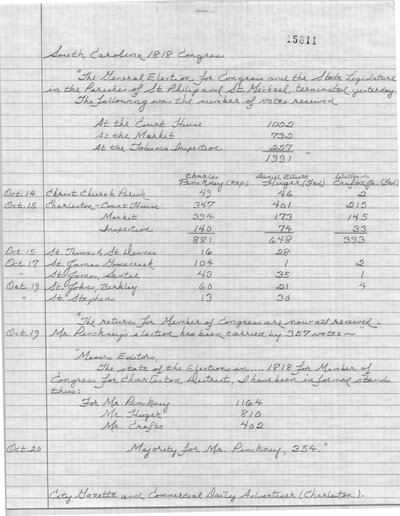 15811
South Carolina 1818 Congress
"The General Election for Congress and the State Legislature
in the Parishes of St. Philip and St. Michael, terminated yesterday.
The following was the number of votes received
At the Court House 1002
At the Market 732
At the Tobacco Inspection 257
1991 "
Charles Pinckney (Rep.) Daniel Elliott Huger (Fed.) William Crafts, Jr. (Fed.)
Oct. 14 Christ Church Parish 49 46 2
Oct. 15 Charleston - Court House 347 401 215
Market 394 173 145
Inspection 140 74 33
881 648 393
Oct. 15 St. Thomas & St. Dennis 16 28
Oct. 17 St. James Goosecreek 104 1 2
" St. James, Santee 43 35 1
Oct. 19 St. Johns, Berkley 60 21 4
" St. Stephens 13 30
"The returns for Member of Congress are now all received.
Oct. 19 Mr. Pinckney's election has been carried by 357 votes ~
"Messrs Editors,
The state of the Elections in.... 1818 for Member of
Congress for Charleston District, I have been informed stands
thus:
For Mr. Pinckney 1164
Mr. Huger 810
Mr. Crafts 402
Oct. 20 Majority for Mr. Pinckney, 354."
City Gazette and Commercial Daily Advertiser (Charleston).